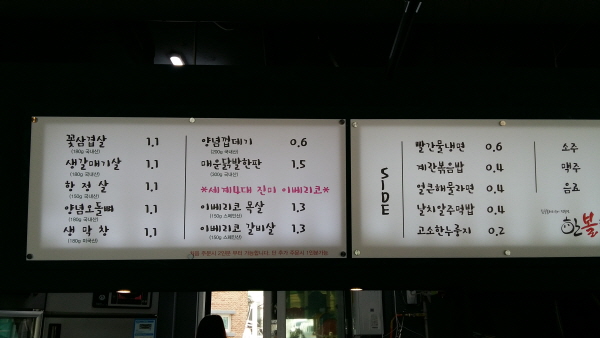 꽃삼겹살 1.1
(180g 국내산)
생갈매기살 1.1
(180g 국내산)
항정살 1.1
(150g 국내산)
양념오돌뼈 1.1
(180g 국내산)
생막창 1.1
(180g 미국산)
양념껍데기 0.6
(200g 국내산)
매운닭발한판 1.5
(300g 국내산)
*세계4대 진미 이베리코*
이베리코 목살 1.3
(150g 스페인산)
이베리코 갈비살 1.3
(150g 스페인산)
SIDE
빨간물냉면 0.6
계란볶음밥 0.4
얼큰해물라면 0.4
날치알주먹밥 0.4
고소한누룽지 0.2
소주
맥주
음료